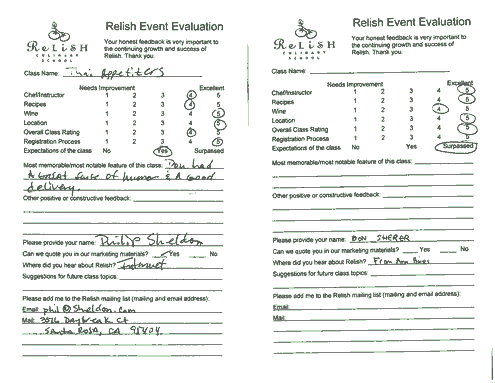 Relish Event Evaluation
Your honest feedback is very important to
the continuing growth and success of
Relish. Thank you.
RELISH
CULINARY
SCHOOL
Class Name: Thai Appetizers
Needs Improvement Excellent
Chef/Instructor 1 2 3 4 5
Recipes 1 2 3 4 5
Wine 1 2 3 4 5
Location 1 2 3 4 5
Overall Class Rating 1 2 3 4 5
Registration Process 1 2 3 4 5
Expectations of the class No Yes Surpassed
Most memorable/most notable feature of this class: Don had
A Great sense of humor & A Good
delivery.
Other positive or constructive feedback:
Please provide your name: Philip Sheldon
Can we quote you in our marketing materials? Yes No
Where did you hear about Relish? Internet
Suggestions for future class topics:
Please add me to the Relish mailing list (mailing and email address):
Email: phil@Sheldon.com
Mail: 3516 Daybreak Ct
Santa Rosa, CA 95404
Relish Event Evaluation
Your honest feedback is very important to
the continuing growth and success of
Relish. Thank you.
RELISH
CULINARY
SCHOOL
Class Name:
Needs Improvement Excellent
Chef/Instructor 1 2 3 4 5
Recipes 1 2 3 4 5
Wine 1 2 3 4 5
Location 1 2 3 4 5
Overall Class Rating 1 2 3 4 5
Registration Process 1 2 3 4 5
Expectations of the class No Yes Surpassed
Most memorable/most notable feature of this class:
Other positive or constructive feedback:
Please provide your name: DON SHERER
Can we quote you in our marketing materials? Yes No
Where did you hear about Relish? From Ann
Suggestions for future class topics:
Please add me to the Relish mailing list (mailing and email address):
Email:
Mail: